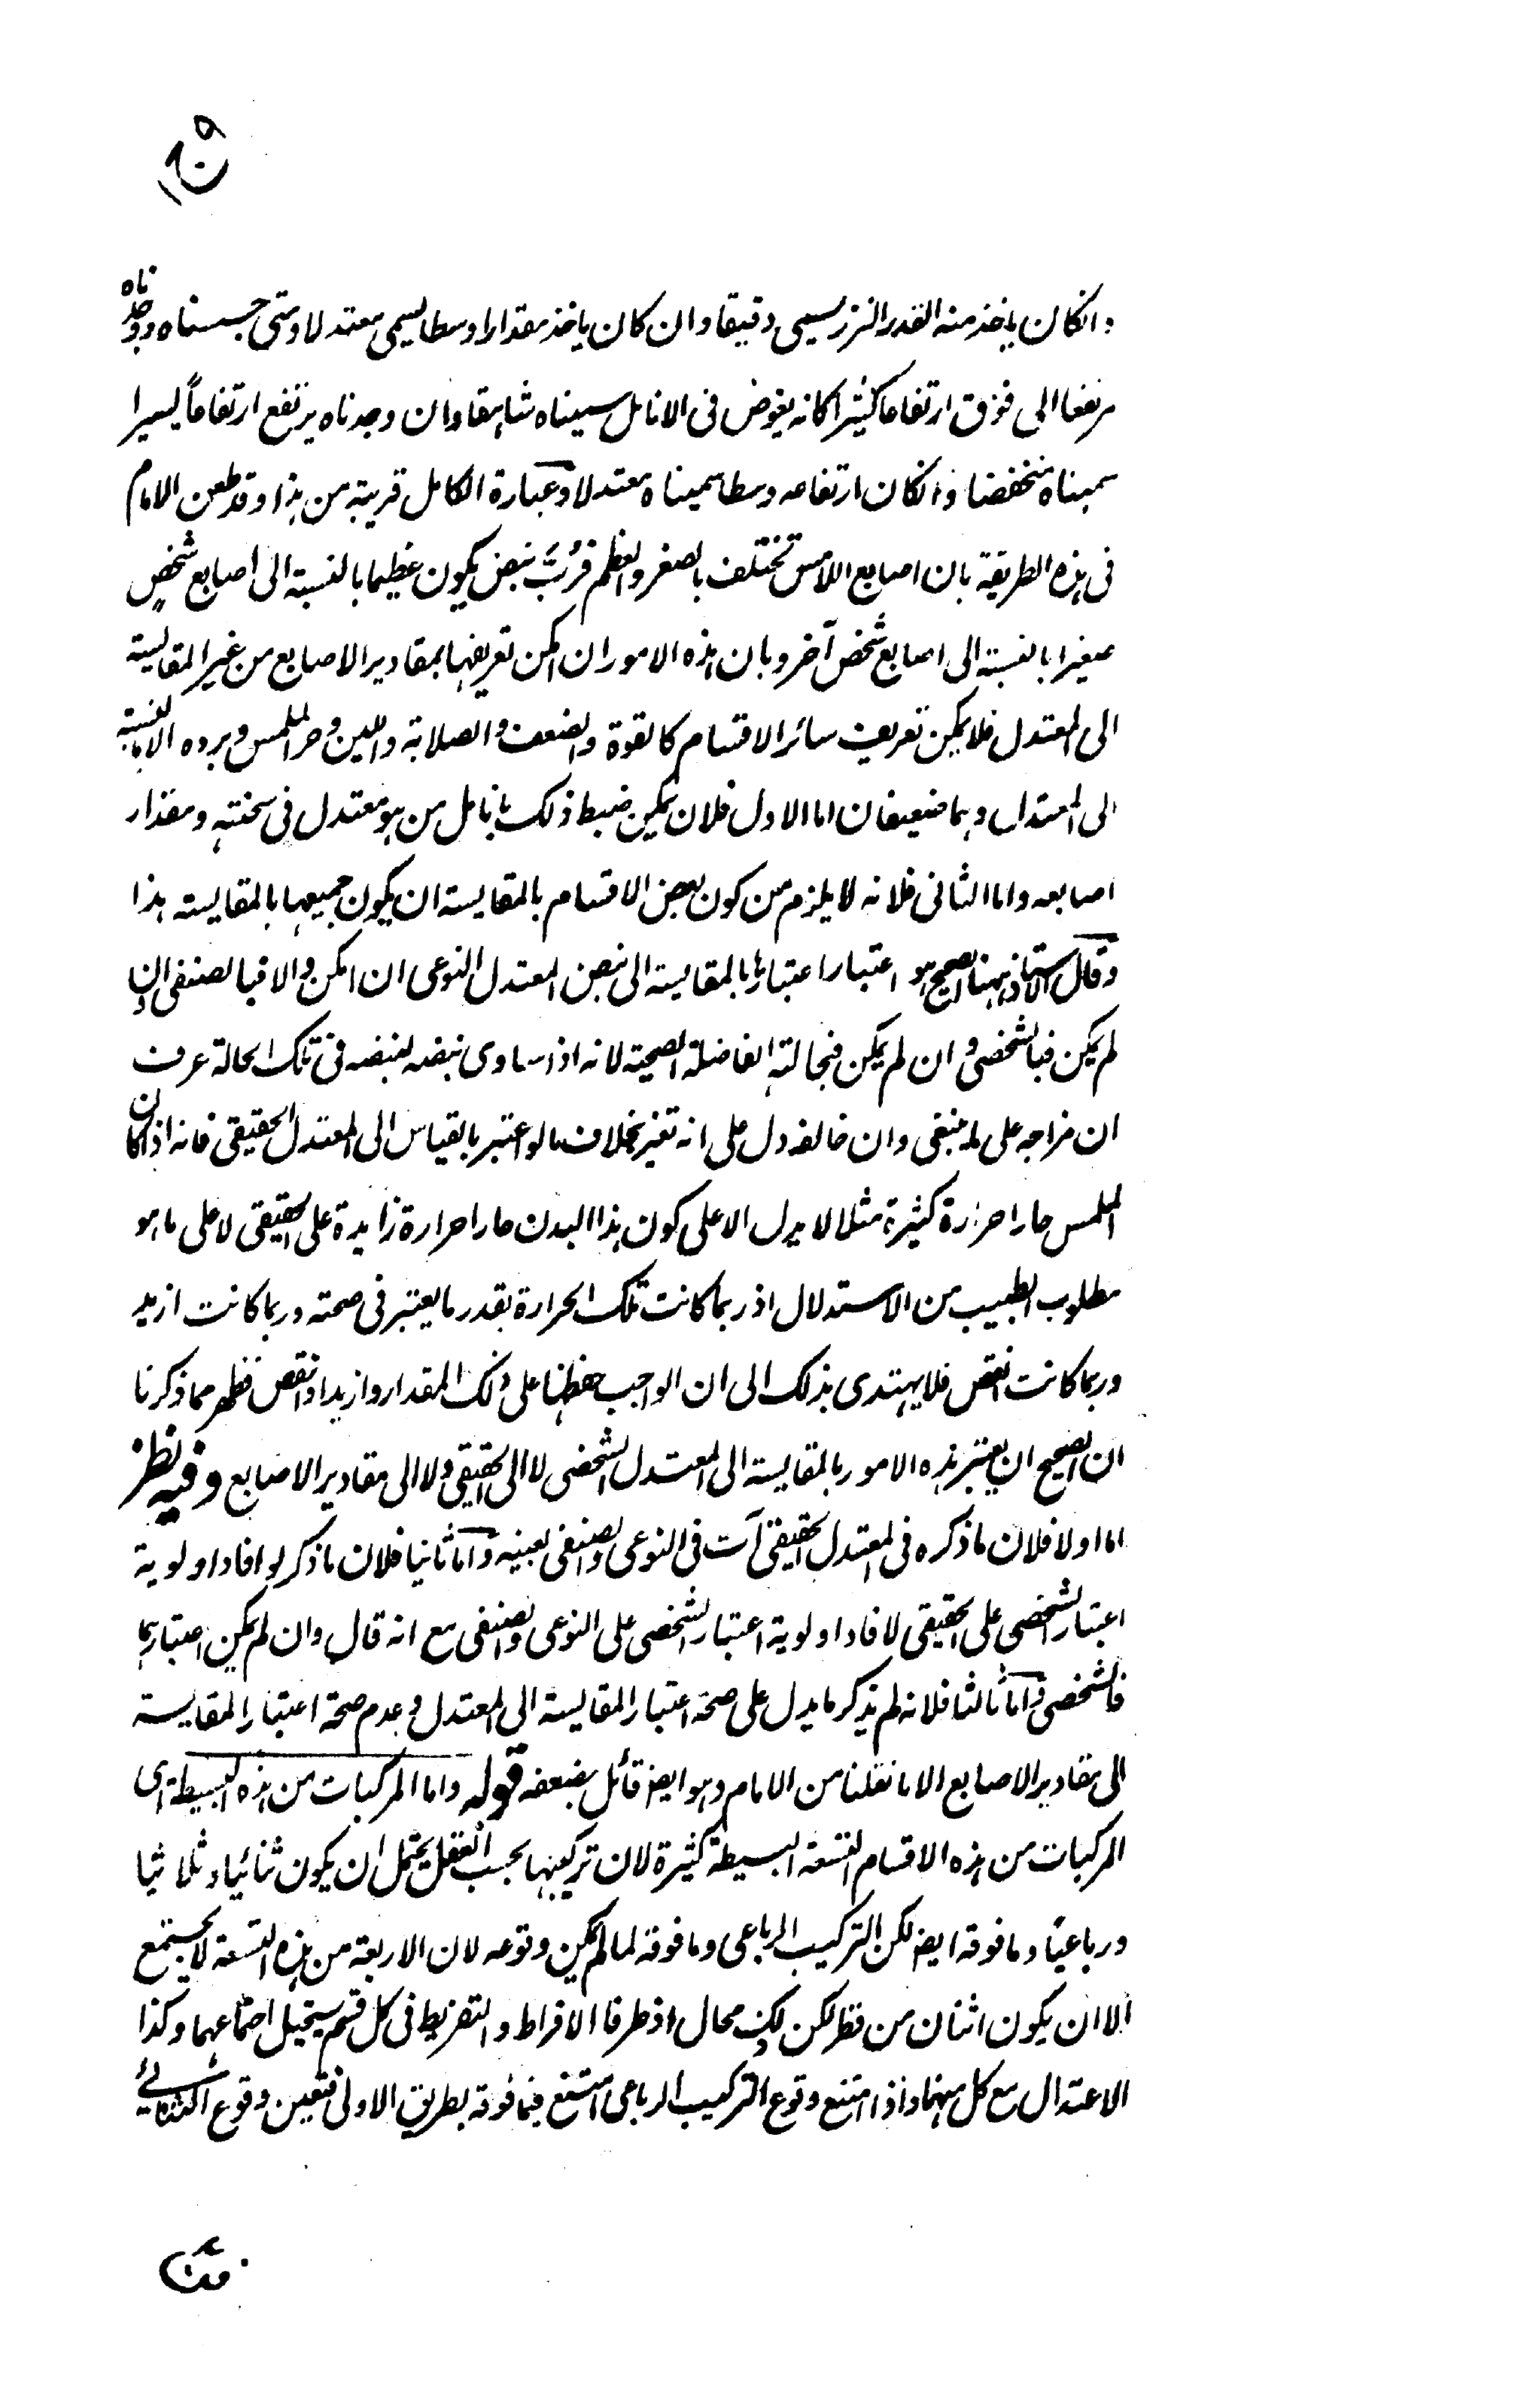 وانكان ياخذ منه القدر النزر يسمى دقيقا وان كان ياخذ مقدارا وسطا يسمى معتدلا ومتى جسسناه ووجدناه
مرتفعا الى فوق ارتفاعا كثيرا كانه يغوض فى الانامل سميناه شاهقا وان وجدناه يرتفع ارتفاعاً يسيرا
سميناه منخفضا وانكان ارتفاعه وسطا سميناه معتدلا وعبارة الكامل قريبة من هذا وقد طعن الامام
فى هذه الطريقة بان اصابع اللامس تختلف بالصغر والعظم فرُبَّ نبض يكون عظيما بالنسبة الى اصابع شخصٍ
صغيرا بالنسبة الى اصابع شخص آخر وبان هذه الامور ان امكن تعريفها بمقادير الاصابع من غير المقايسة
الى المعتدل فلا يمكن تعريف سائر الاقسام كالقوة والضعف والصلابة واللين وحر الملمس وبرده الا بالنسبة
الى المعتدل وهما ضعيفان اما الاول فلان يمكن ضبط ذلك بانامل من هو معتدل فى سخنته ومقدار
اصابعه واما الثانى فلانه لا يلزم من كون بعض الاقسام بالمقايسة ان يكون جميعها بالمقايسة هذا
وقال الاستاذ ههنا الصحيح هو اعتبار اعتبارها بالمقايسة الى نبض المعتدل النوعى ان امكن والا فبالصنفى ان
لم يكن فبالشخصى وان لم يكن فبحالته الفاضلة الصحية لانه اذا ساوى نبضه لنبضه فى تلك الحالة عرف
ان مزاجه على ما ينبغى وان خالفه دل على انه تغير بخلاف ما لو اعتبر بالقياس الى المعتدل الحقيقى فانه اذا كان
الملمس حارا حرارة كثيرة مثلا لا يدل الا على كون هذا البدن حارا حرارة زايدة على الحقيقى لا على ما هو
مطلوب الطبيب من الاستدلال اذ ربما كانت تلك الحرارة بقدر ما يعتبر فى صحته وربما كانت ازيد
وربما كانت انقص فلا يهتدى بذلك الى ان الواجب حفظها على ذلك المقدار وازيد او انقص فظهر مما ذكرنا
ان الصحيح ان يعتبر هذه الامور بالمقايسة الى المعتدل الشخصى لا الى الحقيقى ولا الى مقادير الاصابع وفيه نظر
اما اولا فلان ما ذكره فى المعتدل الحقيقى آت فى النوعى والصنفى بعينه واما ثانيا فلان ما ذكر لو افاد اولوية
اعتبار الشخصى على الحقيقى لافاد اولوية اعتبار الشخصى على النوعى والصنفى مع انه قال وان لم يكن اعتبارهما
فالشخصى واما ثالثا فلانه لم يذكر ما يدل على صحة اعتبار المقايسة الى المعتدل وعدم صحة اعتبار المقايسة
الى مقادير الاصابع الا ما نقلنا من الامام وهو ايضا قائل بضعفه قوله واما المركبات من هذه البسيطة اى
المركبات من هذه الاقسام التسعة البسيطة كثيرة لان تركيبها بحسب العقل يحتمل ان يكون ثنائيا وثلاثيا
ورباعيًا وما فوقه ايضا لكن التركيب الرباعى وما فوقه لما لم يمكن وقوعه لان الاربعة من هذه التسعة لا يجتمع
الا ان يكون اثنان من قطر لكن ذلك محال اذ طرفا الافراط والتفريط فى كل قسم يستحيل اجتماعهما وكذا
الاعتدال مع كل منهما واذا امتنع وقوع التركيب الرباعى امتنع فيما فوقه بطريق الاولى فتعين وقوع الثنائى